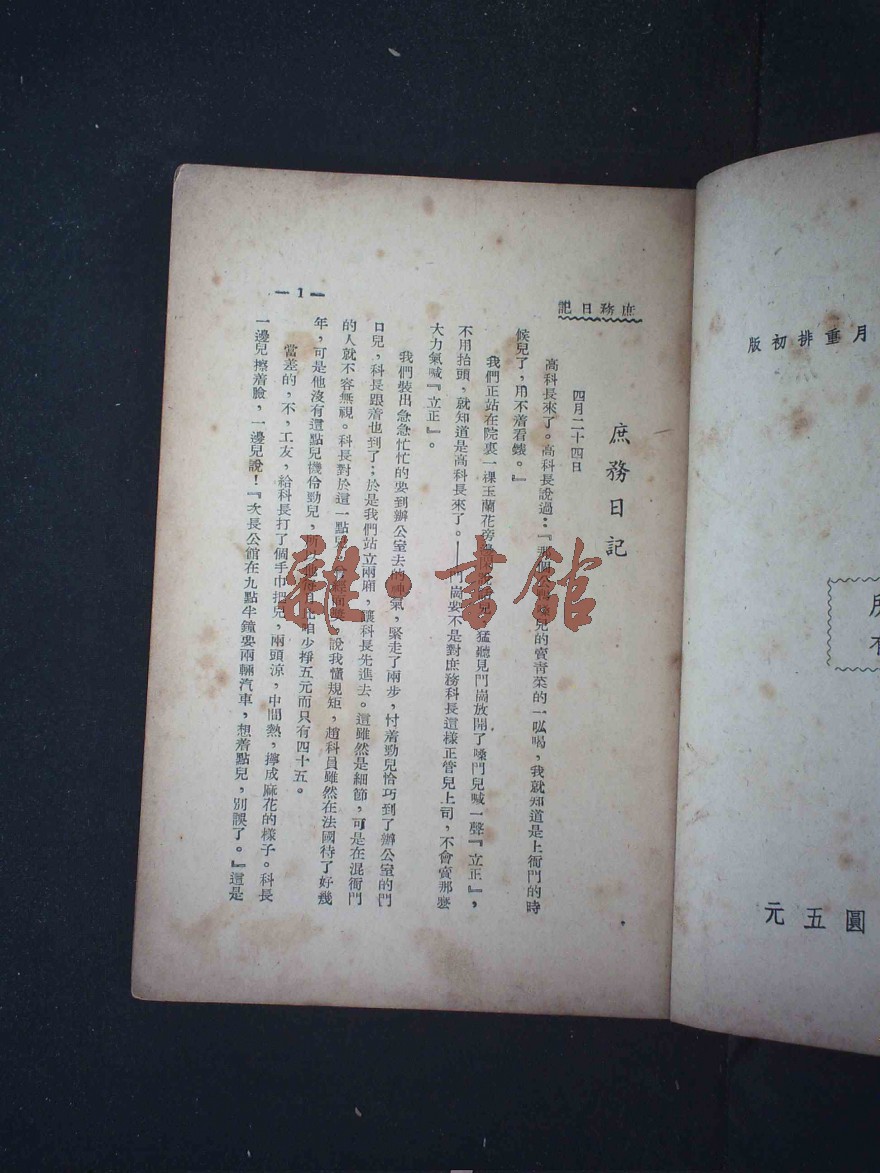 月重排初版
圓五元
庶務日記
庶務日記
四月二十四日
高科長來了。高科長說過:『那個 兒的賣青菜的一吆喝,我就知道是上衙門的時
候兒了,用不着看錶。』
我們正站在院裏一棵玉蘭花旁 猛聽見門崗放開了嗓門兒喊一聲『立正』,
不用抬頭,就知道是高科長來了。——門崗要不是對庶務科長這樣正管兒上司,不會賣那麽
大力氣喊『立正』。
我們裝出急急忙忙的要到辦公室去的神氣,緊走了兩步,忖着勁兒恰巧到了辦公室的門
口兒,科長跟着也到了;於是我們站立兩廂,讓科長先進去。這雖然是細節,可是在混衙門
的人就不容無視。科長對於這一點兒 說我懂規矩,趙科員雖然在法國待了好幾
年,可是他沒有這點兒機伶勁兒, 咱少掙五元而只有四十五。
當差的,不,工友,給科長打了個手巾把兒,兩頭涼,中間熱,擰成麻花的樣子。科長
一邊兒擦着臉,一邊兒說!『次長公館在九點半鐘要兩輛汽車,想着點兒,別誤了。』這是
— 1 —
雜·書館